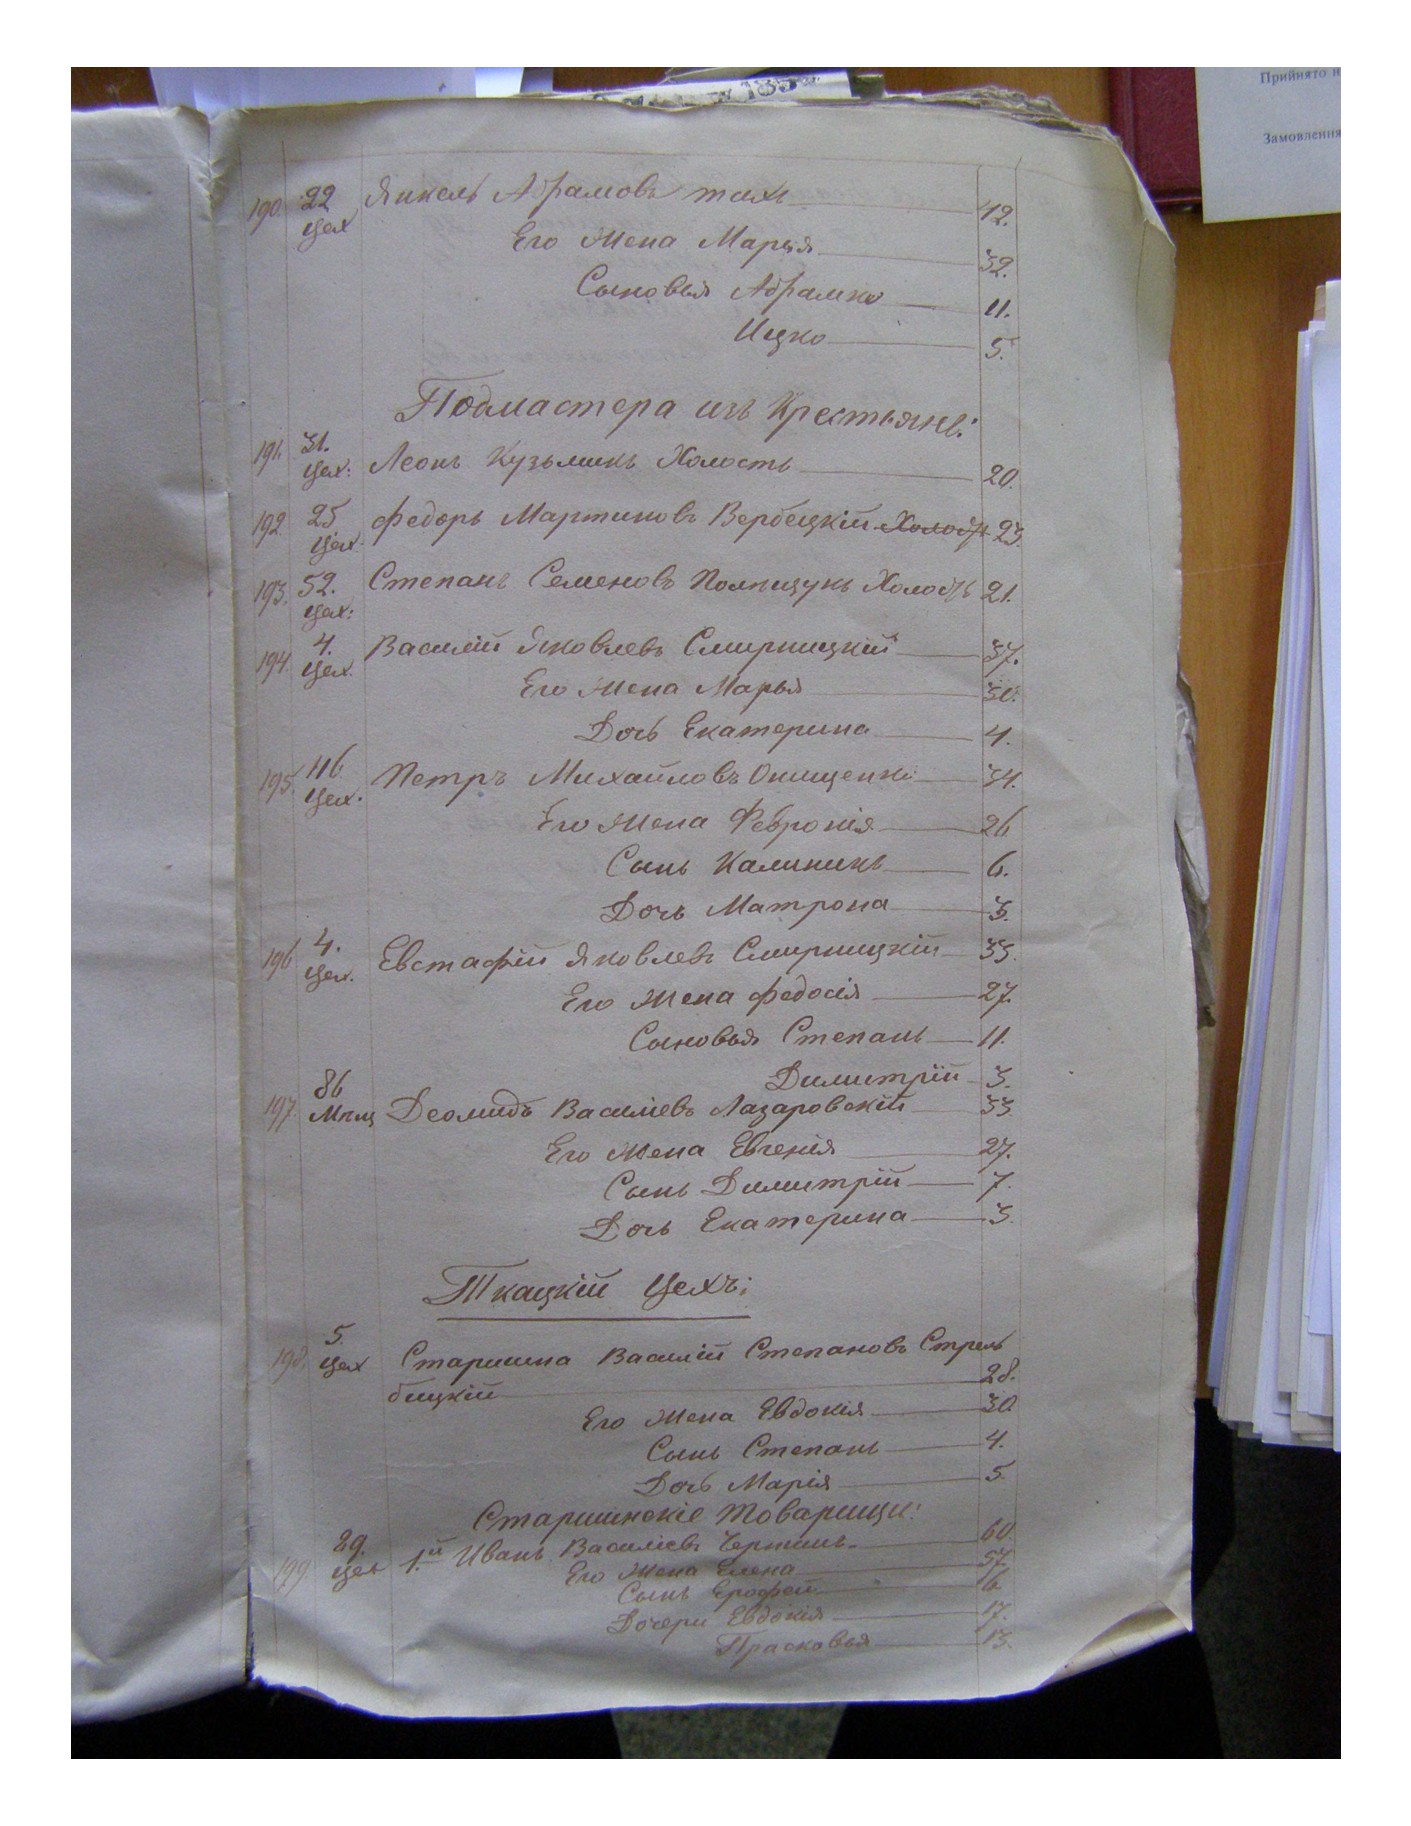 Прийнято н
Замовлення
190. 22 Янкель Абрамовъ тахъ 42.
цех
Его Жена Марья 32.
Сыновья Абрамко 11.
Ицко 5.
Подмастера изъ Крестьянъ:
191. 31. Леонъ Кузьминъ Холостъ 20.
цех:
192. 25 Федоръ Мартиновъ Вербецкій Холостъ 23.
цех.
193. 52. Степанъ Семеновъ Полищукъ Холостъ 21.
цех:
194. 4. Василій Яковлевъ Смирницкій 37.
цех.
Его Жена Марья 30.
Дочь Екатерина 4.
195. 116 Петръ Михайловъ Онищенко 34.
цех.
Его Жена Февронія 26
Сынъ Калиникъ 6.
Дочь Матрона 3.
196 4. Евстафій Яковлевъ Смирницкій 33.
цех.
Его Жена Федосія 27.
Сыновья Степанъ 11.
Димитрій 3.
197. 86 Деомидъ Василіевъ Лазаровскій 33
Мѣщ
Его Жена Евгенія 27.
Сынъ Димитрій 7.
Дочь Екатерина 3.
Ткацкій Цехъ:
198. 5. Старшина Василій Степановъ Стрель
цех бицкій 28.
Его Жена Евдокія 30
Сынъ Степанъ 4.
Дочь Марія 5.
Старшинскіе Товарищи:
199. 29. 1й Иванъ Василіевъ 60.
цех Его Жена Елена 57.
Сынъ Ерофей 16
Дочери Евдокія 17.
Прасковья 13.